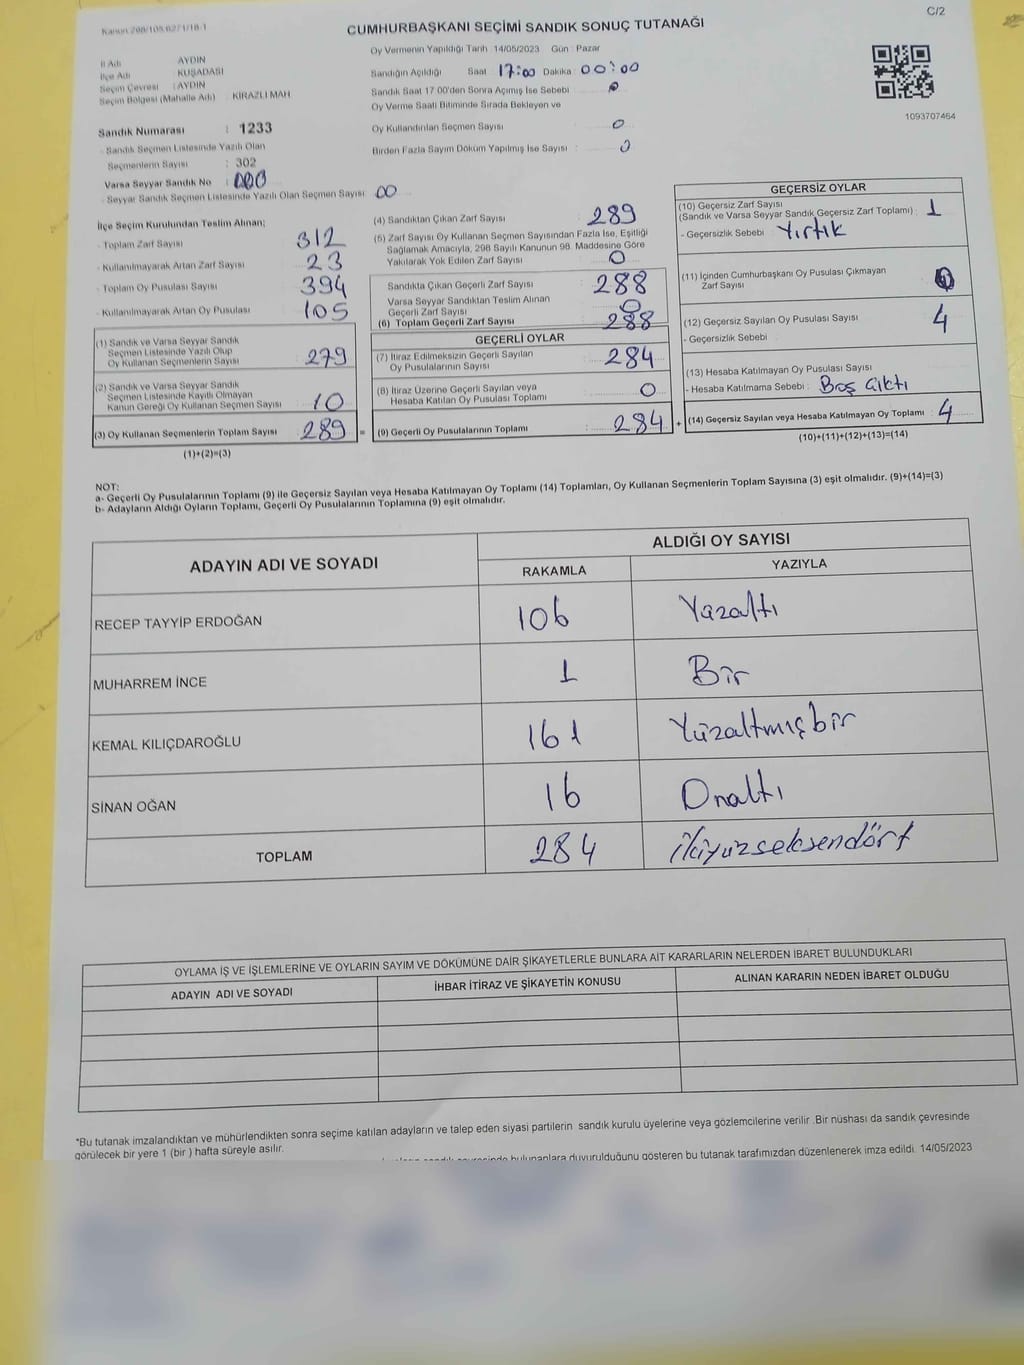 Kanun 298/105,6271/18-1
C/2
CUMHURBAŞKANI SEÇİMİ SANDIK SONUÇ TUTANAĞI
Oy Vermenin Yapıldığı Tarih 14/05/2023 Gün : Pazar
İl Adı AYDIN
İlçe Adı KUŞADASI
Seçim Çevresi : AYDIN
Seçim Bölgesi (Mahalle Adı) : KİRAZLI MAH.
Sandığın Açıldığı Saat 17:00 Dakika 00:00
Sandık Saat 17:00'den Sonra Açımış İse Sebebi
Oy Verme Saati Bitiminde Sırada Bekleyen ve
Oy Kullandırılan Seçmen Sayısı : 0
Birden Fazla Sayım Döküm Yapılmış İse Sayısı : 0
1093707464
Sandık Numarası : 1233
- Sandık Seçmen Listesinde Yazılı Olan
Seçmenlerin Sayısı : 302
Varsa Seyyar Sandık No : 000
- Seyyar Sandık Seçmen Listesinde Yazılı Olan Seçmen Sayısı : 00
İlçe Seçim Kurulundan Teslim Alınan;
- Toplam Zarf Sayısı 312
- Kullanılmayarak Artan Zarf Sayısı 23
- Toplam Oy Pusulası Sayısı 394
- Kullanılmayarak Artan Oy Pusulası 105
(1) Sandık ve Varsa Seyyar Sandık
Seçmen Listesinde Yazılı Olup
Oy Kullanan Seçmenlerin Sayısı 279
(2) Sandık ve Varsa Seyyar Sandık
Seçmen Listesinde Kayıtlı Olmayan
Kanun Gereği Oy Kullanan Seçmen Sayısı 10
(3) Oy Kullanan Seçmenlerin Toplam Sayısı 289 =
(1)+(2)=(3)
(4) Sandıktan Çıkan Zarf Sayısı 289
(5) Zarf Sayısı Oy Kullanan Seçmen Sayısından Fazla İse, Eşitliği
Sağlamak Amacıyla, 298 Sayılı Kanunun 98. Maddesine Göre
Yakılarak Yok Edilen Zarf Sayısı 0
Sandıkta Çıkan Geçerli Zarf Sayısı 288
Varsa Seyyar Sandıktan Teslim Alınan
Geçerli Zarf Sayısı 0
(6) Toplam Geçerli Zarf Sayısı 288
GEÇERLİ OYLAR
(7) İtiraz Edilmeksizin Geçerli Sayılan
Oy Pusulalarının Sayısı : 284
(8) İtiraz Üzerine Geçerli Sayılan veya
Hesaba Katılan Oy Pusulası Toplamı 0
(9) Geçerli Oy Pusulalarının Toplamı : 284 +
GEÇERSİZ OYLAR
(10) Geçersiz Zarf Sayısı
(Sandık ve Varsa Seyyar Sandık Geçersiz Zarf Toplamı) : 1
- Geçersizlik Sebebi : Yırtık
(11) İçinden Cumhurbaşkanı Oy Pusulası Çıkmayan
Zarf Sayısı
(12) Geçersiz Sayılan Oy Pusulası Sayısı 4
- Geçersizlik Sebebi :
(13) Hesaba Katılmayan Oy Pusulası Sayısı
- Hesaba Katılmama Sebebi : Boş Çıktı
(14) Geçersiz Sayılan veya Hesaba Katılmayan Oy Toplamı : 4
(10)+(11)+(12)+(13)=(14)
NOT:
a- Geçerli Oy Pusulalarının Toplamı (9) ile Geçersiz Sayılan veya Hesaba Katılmayan Oy Toplamı (14) Toplamları, Oy Kullanan Seçmenlerin Toplam Sayısına (3) eşit olmalıdır. (9)+(14)=(3)
b- Adayların Aldığı Oyların Toplamı, Geçerli Oy Pusulalarının Toplamına (9) eşit olmalıdır.
ADAYIN ADI VE SOYADI ALDIĞI OY SAYISI
RAKAMLA YAZIYLA
RECEP TAYYİP ERDOĞAN 106 Yüzaltı
MUHARREM İNCE 1 Bir
KEMAL KILIÇDAROĞLU 161 Yüzaltmışbir
SİNAN OĞAN 16 Onaltı
TOPLAM 284 ikiyüzseksendört
OYLAMA İŞ VE İŞLEMLERİNE VE OYLARIN SAYIM VE DÖKÜMÜNE DAİR ŞİKAYETLERLE BUNLARA AİT KARARLARIN NELERDEN İBARET BULUNDUKLARI
ADAYIN ADI VE SOYADI İHBAR İTİRAZ VE ŞİKAYETİN KONUSU ALINAN KARARIN NEDEN İBARET OLDUĞU
*Bu tutanak imzalandıktan ve mühürlendikten sonra seçime katılan adayların ve talep eden siyasi partilerin sandık kurulu üyelerine veya gözlemcilerine verilir .Bir nüshası da sandık çevresinde
görülecek bir yere 1 (bir ) hafta süreyle asılır.
bulunanlara duyurulduğunu gösteren bu tutanak tarafımızdan düzenlenerek imza edildi. 14/05/2023